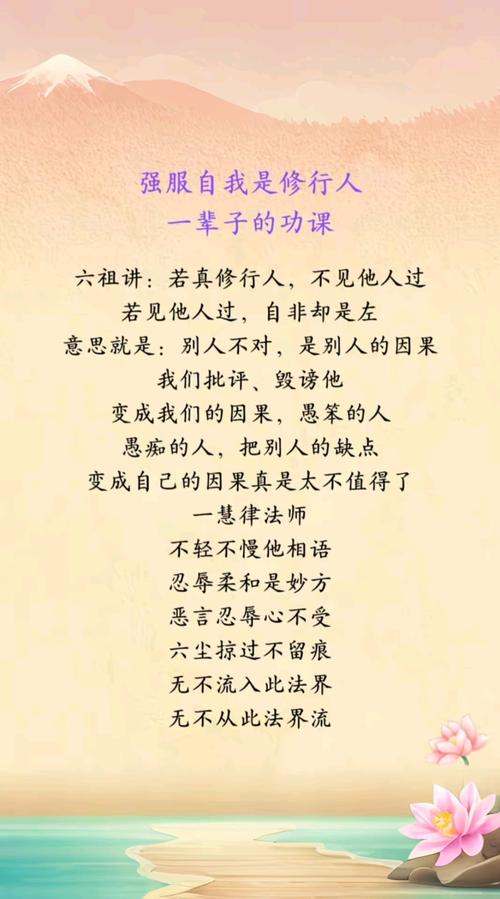 强服自我是修行人
一辈子的功课
六祖讲：若真修行人，不见他人过
若见他人过，自非却是左
意思就是：别人不对，是别人的因果
我们批评、毁谤他
变成我们的因果，愚笨的人
愚痴的人，把别人的缺点
变成自己的因果真是太不值得了
一慧律法师
不轻不慢他相语
忍辱柔和是妙方
恶言忍辱心不受
六尘掠过不留痕
无不流入此法界
无不从此法界流